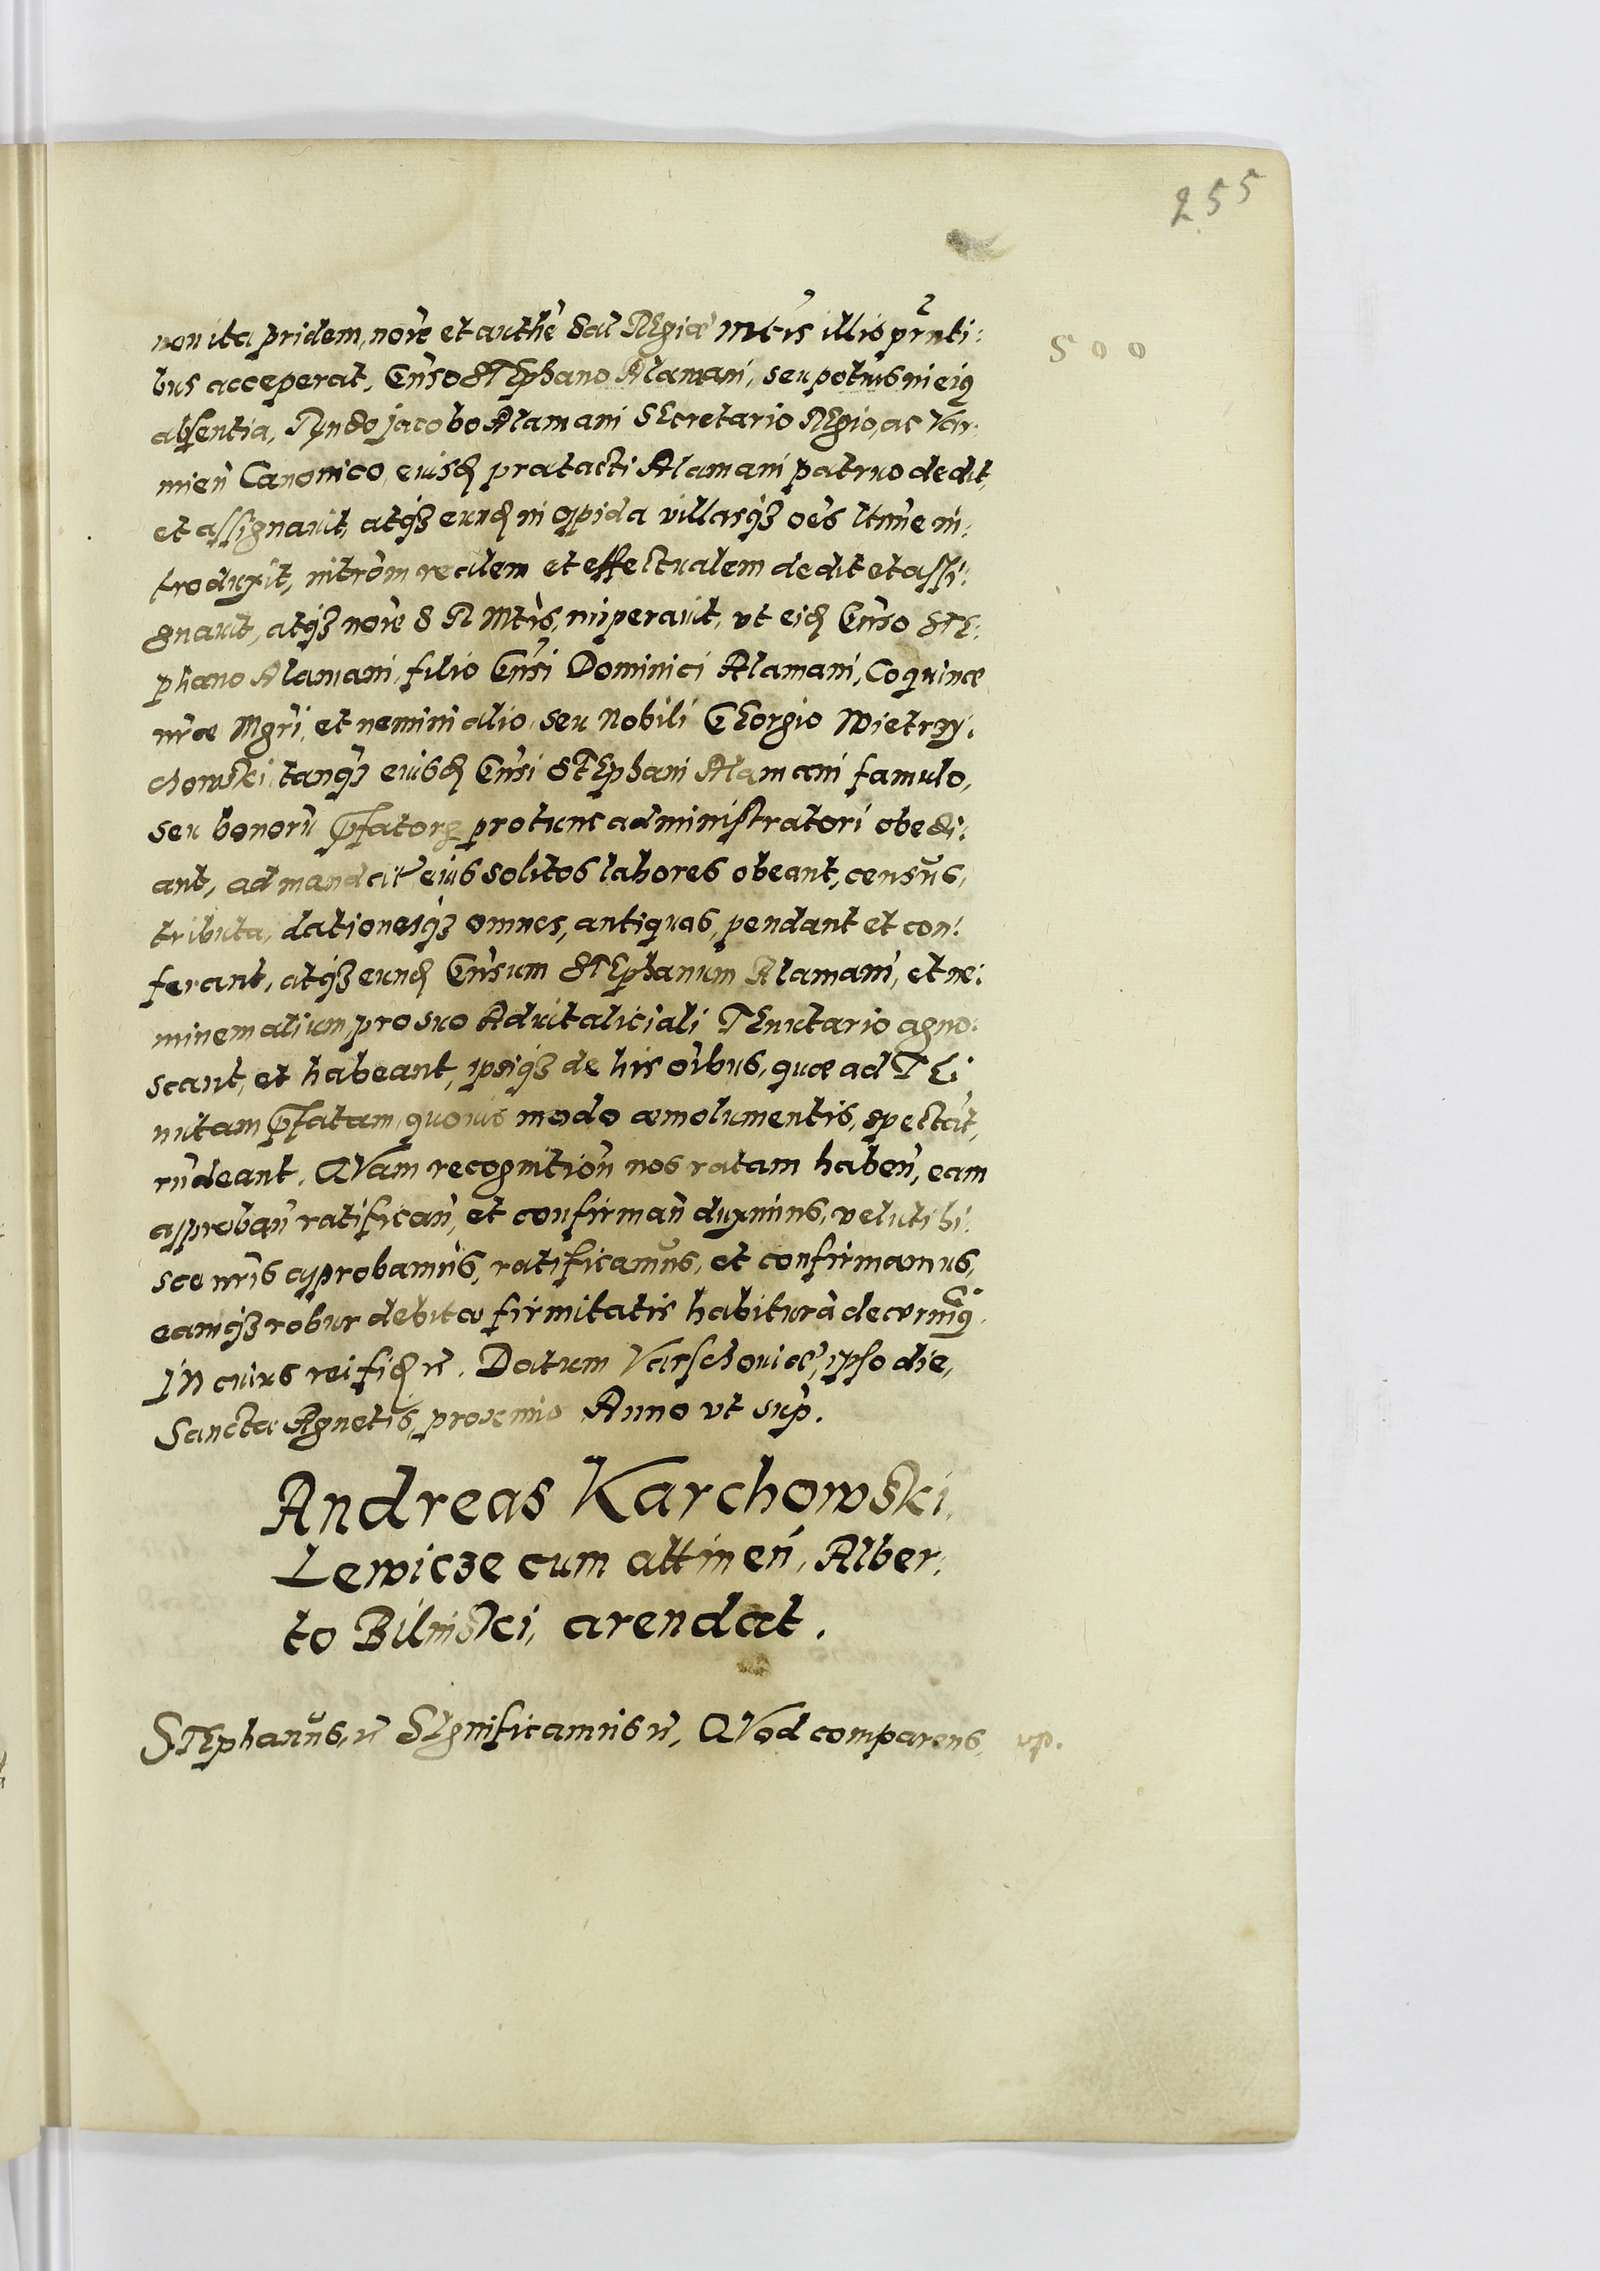 255
500
non ita pridem, noîe et authê Sac Regiæ Mtis illis pr̃nti:
bus acceperat, Gñso STEphano Alamani, seu potius in eiq
absentia, Rñdo Jacobo Alamani SEcretario REgio, ac Var:
mieñ Canonico, eiusd prætacti Alamani patruo dedit,
et assignavit, atq3 eund in oppida villasq3 oẽs ltime in:
troduxit, intrõm realem et effectualem dedit et assi:
gnavit, atq3 noîe S R Mtis, imperavit, vt eid Gñso STE:
phano Alamani, filio Gñsi Dominici Alamani, Coquinæ
nr̃æ Mgri, et nemini alio, seu Nobili GEorgio Wietrzy:
chowski tanq3 eiusd Gñsi STEphani Alamani famulo,
seu bonorũ p̃fatorq pro tunc administratori obedi:
ant, ad mandat eius solitos labores obeant, census,
tributa, dationesq3 omnes, antiquas, pendant et con:
ferant, atq3 eund Gñsum STEphanum Alamani, et ne:
minem alium, pro suo Advitaliciali TEnutario agno:
scant, et habeant, ipsiq3 de his oîbus, quæ ad TE:
nutam p̃fatam, quovis modo æmolumentis, spectãt,
rñdeant. QVam recognitioñ nos ratam habeñ, eam
approbañ ratificañ, et confirmañ duximus, veluti hi:
sce nr̃is approbamus, ratificamus, et confirmamus,
eamq3 robur debitæ firmitatis habiturã decernimq.
In cuius rei fid &. Datum Varschoviæ, ipso die,
Sanctæ Agnetis, proxime Anno vt sup.
Andreas Karchowski,
Lewicze cum attineñ, Alber:
to Bilinski, arendat.
STEphanus, & SIgnificamus &, QVod comparens, vp.